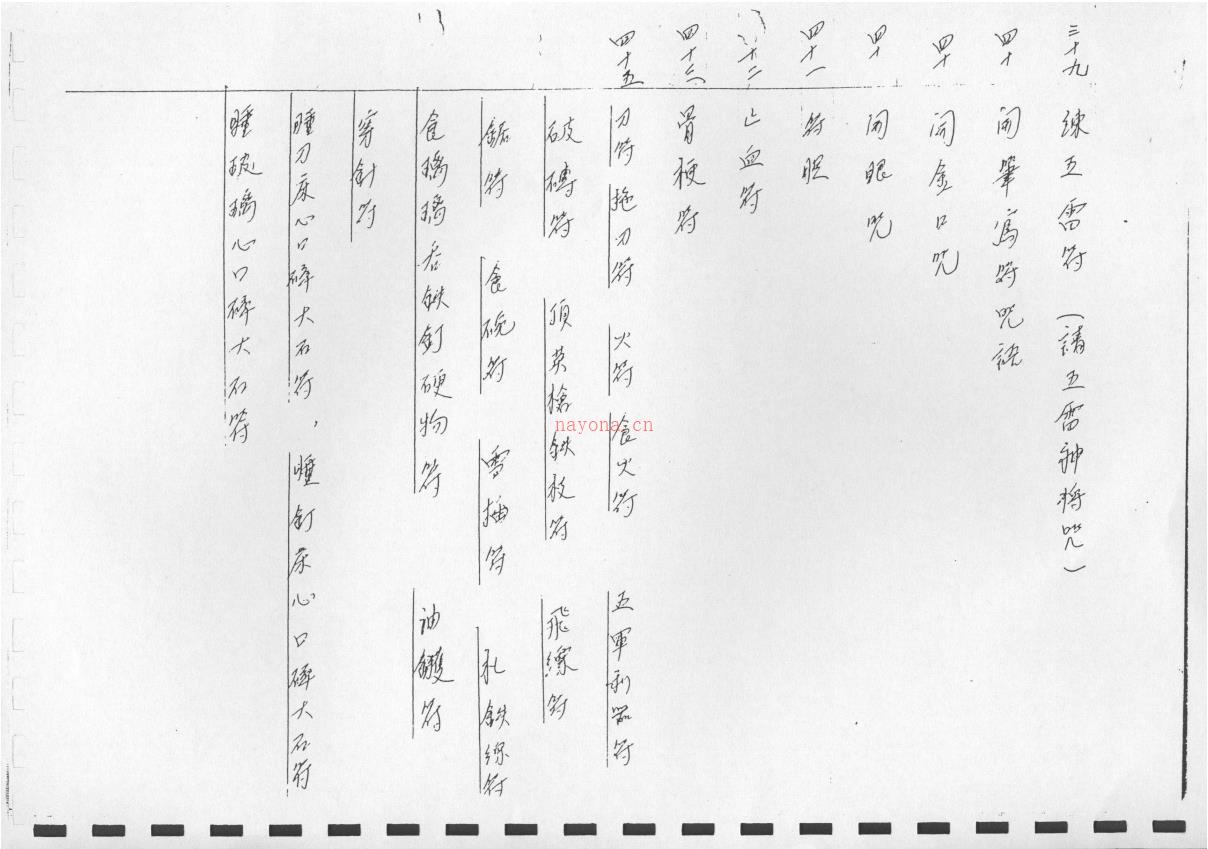 三十九 練五雷符（請五雷神將咒）
四十 開筆寫符咒語
四十 開金口咒
四十 開眼咒
四十一 符胆
十二 止血符
四十三 骨梗符
四十五 刀符 拖刀符 火符 食火符 五軍利器符
破磚符 頂英槍鉄枝符 飛線符
鋸符 食碗符 雪插符 鉄線符
食璃璃吞鉄釘硬物符 油鑊符
穿針符
瞳刀床心口碎大石符，瞳釘床心口碎大石符
瞳玻璃心口碎大石符
nayona.cn